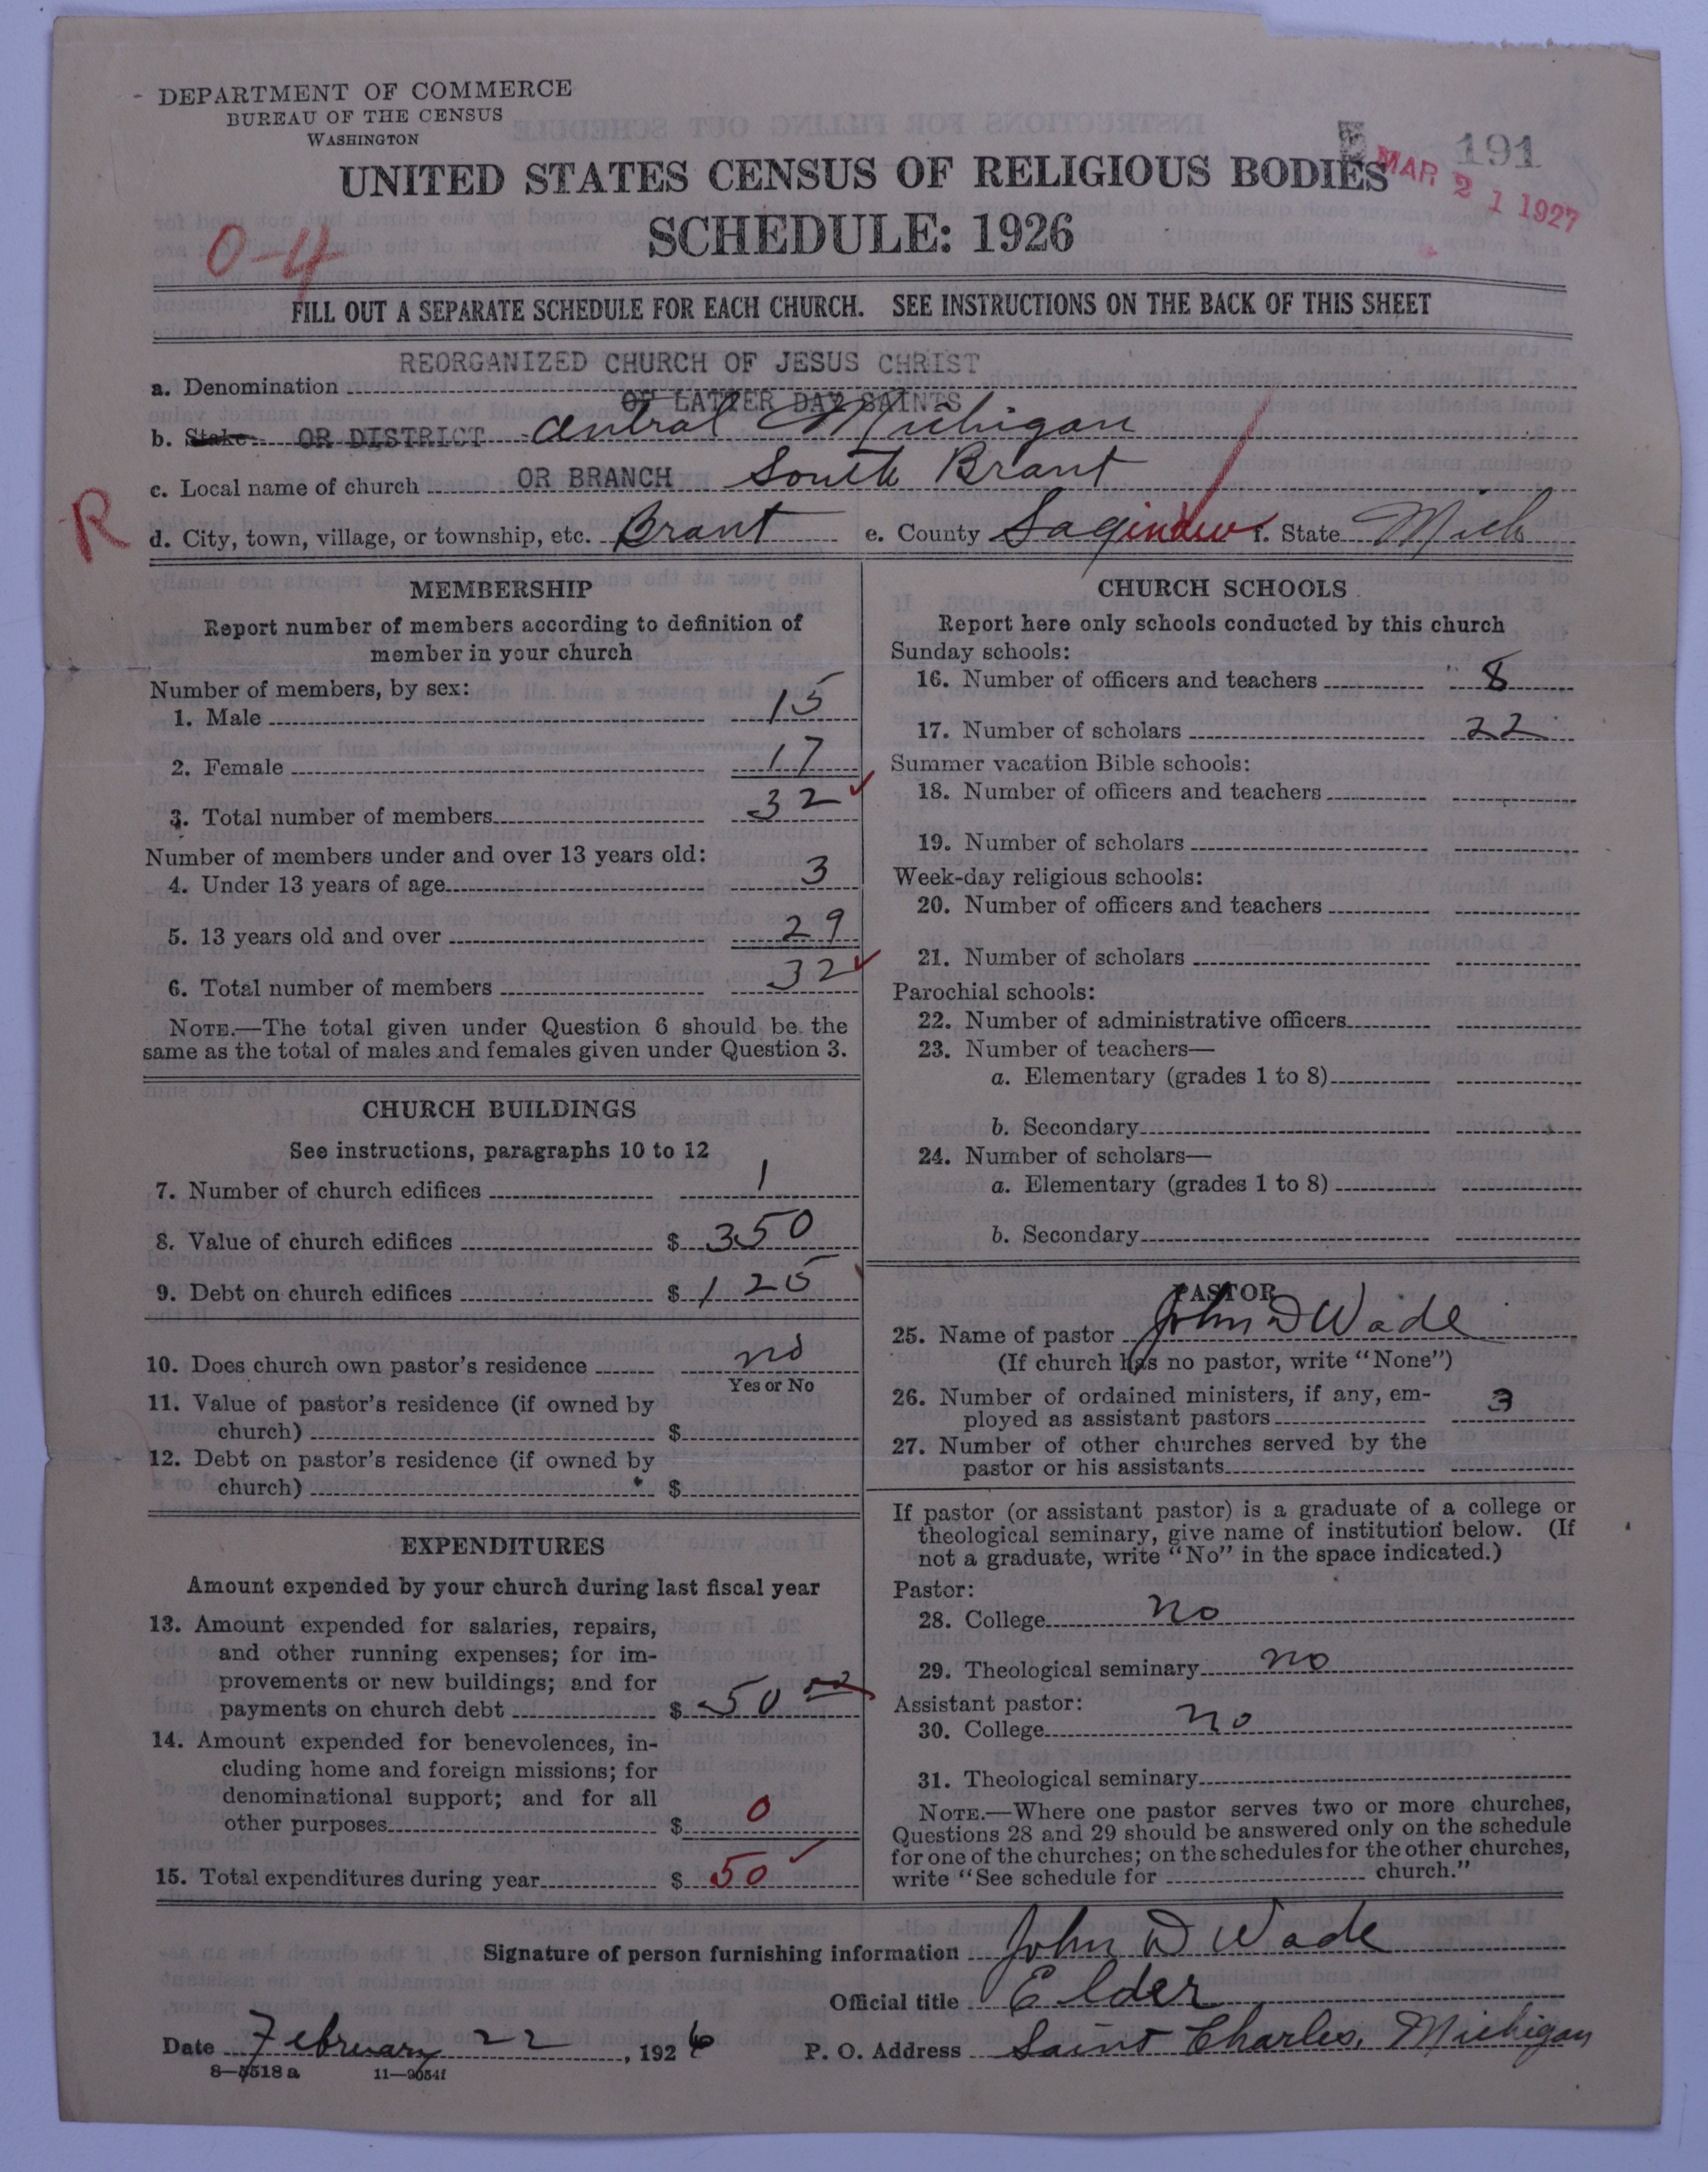 DEPARTMENT OF COMMERCE
BUREAU OF THE CENSUS
WASHINGTON
UNITED STATES CENSUS OF RELIGIOUS BODIES
191
MAR 21 1927
SCHEDULE: 1926
0-4
FILL OUT A SEPARATE SCHEDULE FOR EACH CHURCH. SEE INSTRUCTIONS ON THE BACK OF THIS SHEET
REORGANIZED CHURCH OF JESUS CHRIST
a. Denomination
OF LATTER DAY SAINTS
b. State OR DISTRICT Central Michigan
c. Local name of church OR BRANCH South Brant
R
d. City, town, village, or township, etc. Brant e. County Saginaw f. State Mich
MEMBERSHIP
Report number of members according to definition of
member in your church
Number of members, by sex:
1. Male 15
2. Female 17
3. Total number of members 32
Number of members under and over 13 years old:
4. Under 13 years of age 3
5. 13 years old and over 29
6. Total number of members 32
NOTE.—The total given under Question 6 should be the
same as the total of males and females given under Question 3.
CHURCH BUILDINGS
See instructions, paragraphs 10 to 12
7. Number of church edifices 1
8. Value of church edifices $ 350
9. Debt on church edifices $ 125
10. Does church own pastor's residence no
Yes or No
11. Value of pastor's residence (if owned by
church) $
12. Debt on pastor's residence (if owned by
church) $
EXPENDITURES
Amount expended by your church during last fiscal year
13. Amount expended for salaries, repairs,
and other running expenses; for im-
provements or new buildings; and for
payments on church debt $ 50
14. Amount expended for benevolences, in-
cluding home and foreign missions; for
denominational support; and for all
other purposes $ 0
15. Total expenditures during year $ 50
CHURCH SCHOOLS
Report here only schools conducted by this church
Sunday schools:
16. Number of officers and teachers 8
17. Number of scholars 22
Summer vacation Bible schools:
18. Number of officers and teachers
19. Number of scholars
Week-day religious schools:
20. Number of officers and teachers
21. Number of scholars
Parochial schools:
22. Number of administrative officers
23. Number of teachers—
a. Elementary (grades 1 to 8)
b. Secondary
24. Number of scholars—
a. Elementary (grades 1 to 8)
b. Secondary
PASTOR
25. Name of pastor John D Wade
(If church has no pastor, write "None")
26. Number of ordained ministers, if any, em-
ployed as assistant pastors 3
27. Number of other churches served by the
pastor or his assistants
If pastor (or assistant pastor) is a graduate of a college or
theological seminary, give name of institution below. (If
not a graduate, write "No" in the space indicated.)
Pastor:
28. College no
29. Theological seminary no
Assistant pastor:
30. College no
31. Theological seminary
NOTE.—Where one pastor serves two or more churches,
Questions 28 and 29 should be answered only on the schedule
for one of the churches; on the schedules for the other churches,
write "See schedule for church."
Signature of person furnishing information John D Wade
Official title Elder
Date February 22, 1926 P. O. Address Saint Charles, Michigan
8-5518a 11-9054f